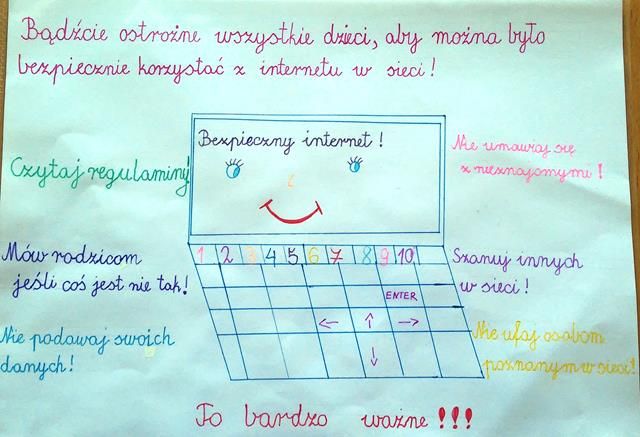 Bądźcie ostrożne wszystkie dzieci, aby można było
bezpiecznie korzystać z internetu w sieci!
Bezpieczny internet!
Czytaj regulaminy!
Nie umawiaj się
z nieznajomymi!
Mów rodzicom
jeśli coś jest nie tak!
1 2 3 4 5 6 7 8 9 10
Szanuj innych
w sieci!
ENTER
← ↑ →
↓
Nie podawaj swoich
danych!
Nie ufaj osobom
poznanym w sieci!
To bardzo ważne!!!